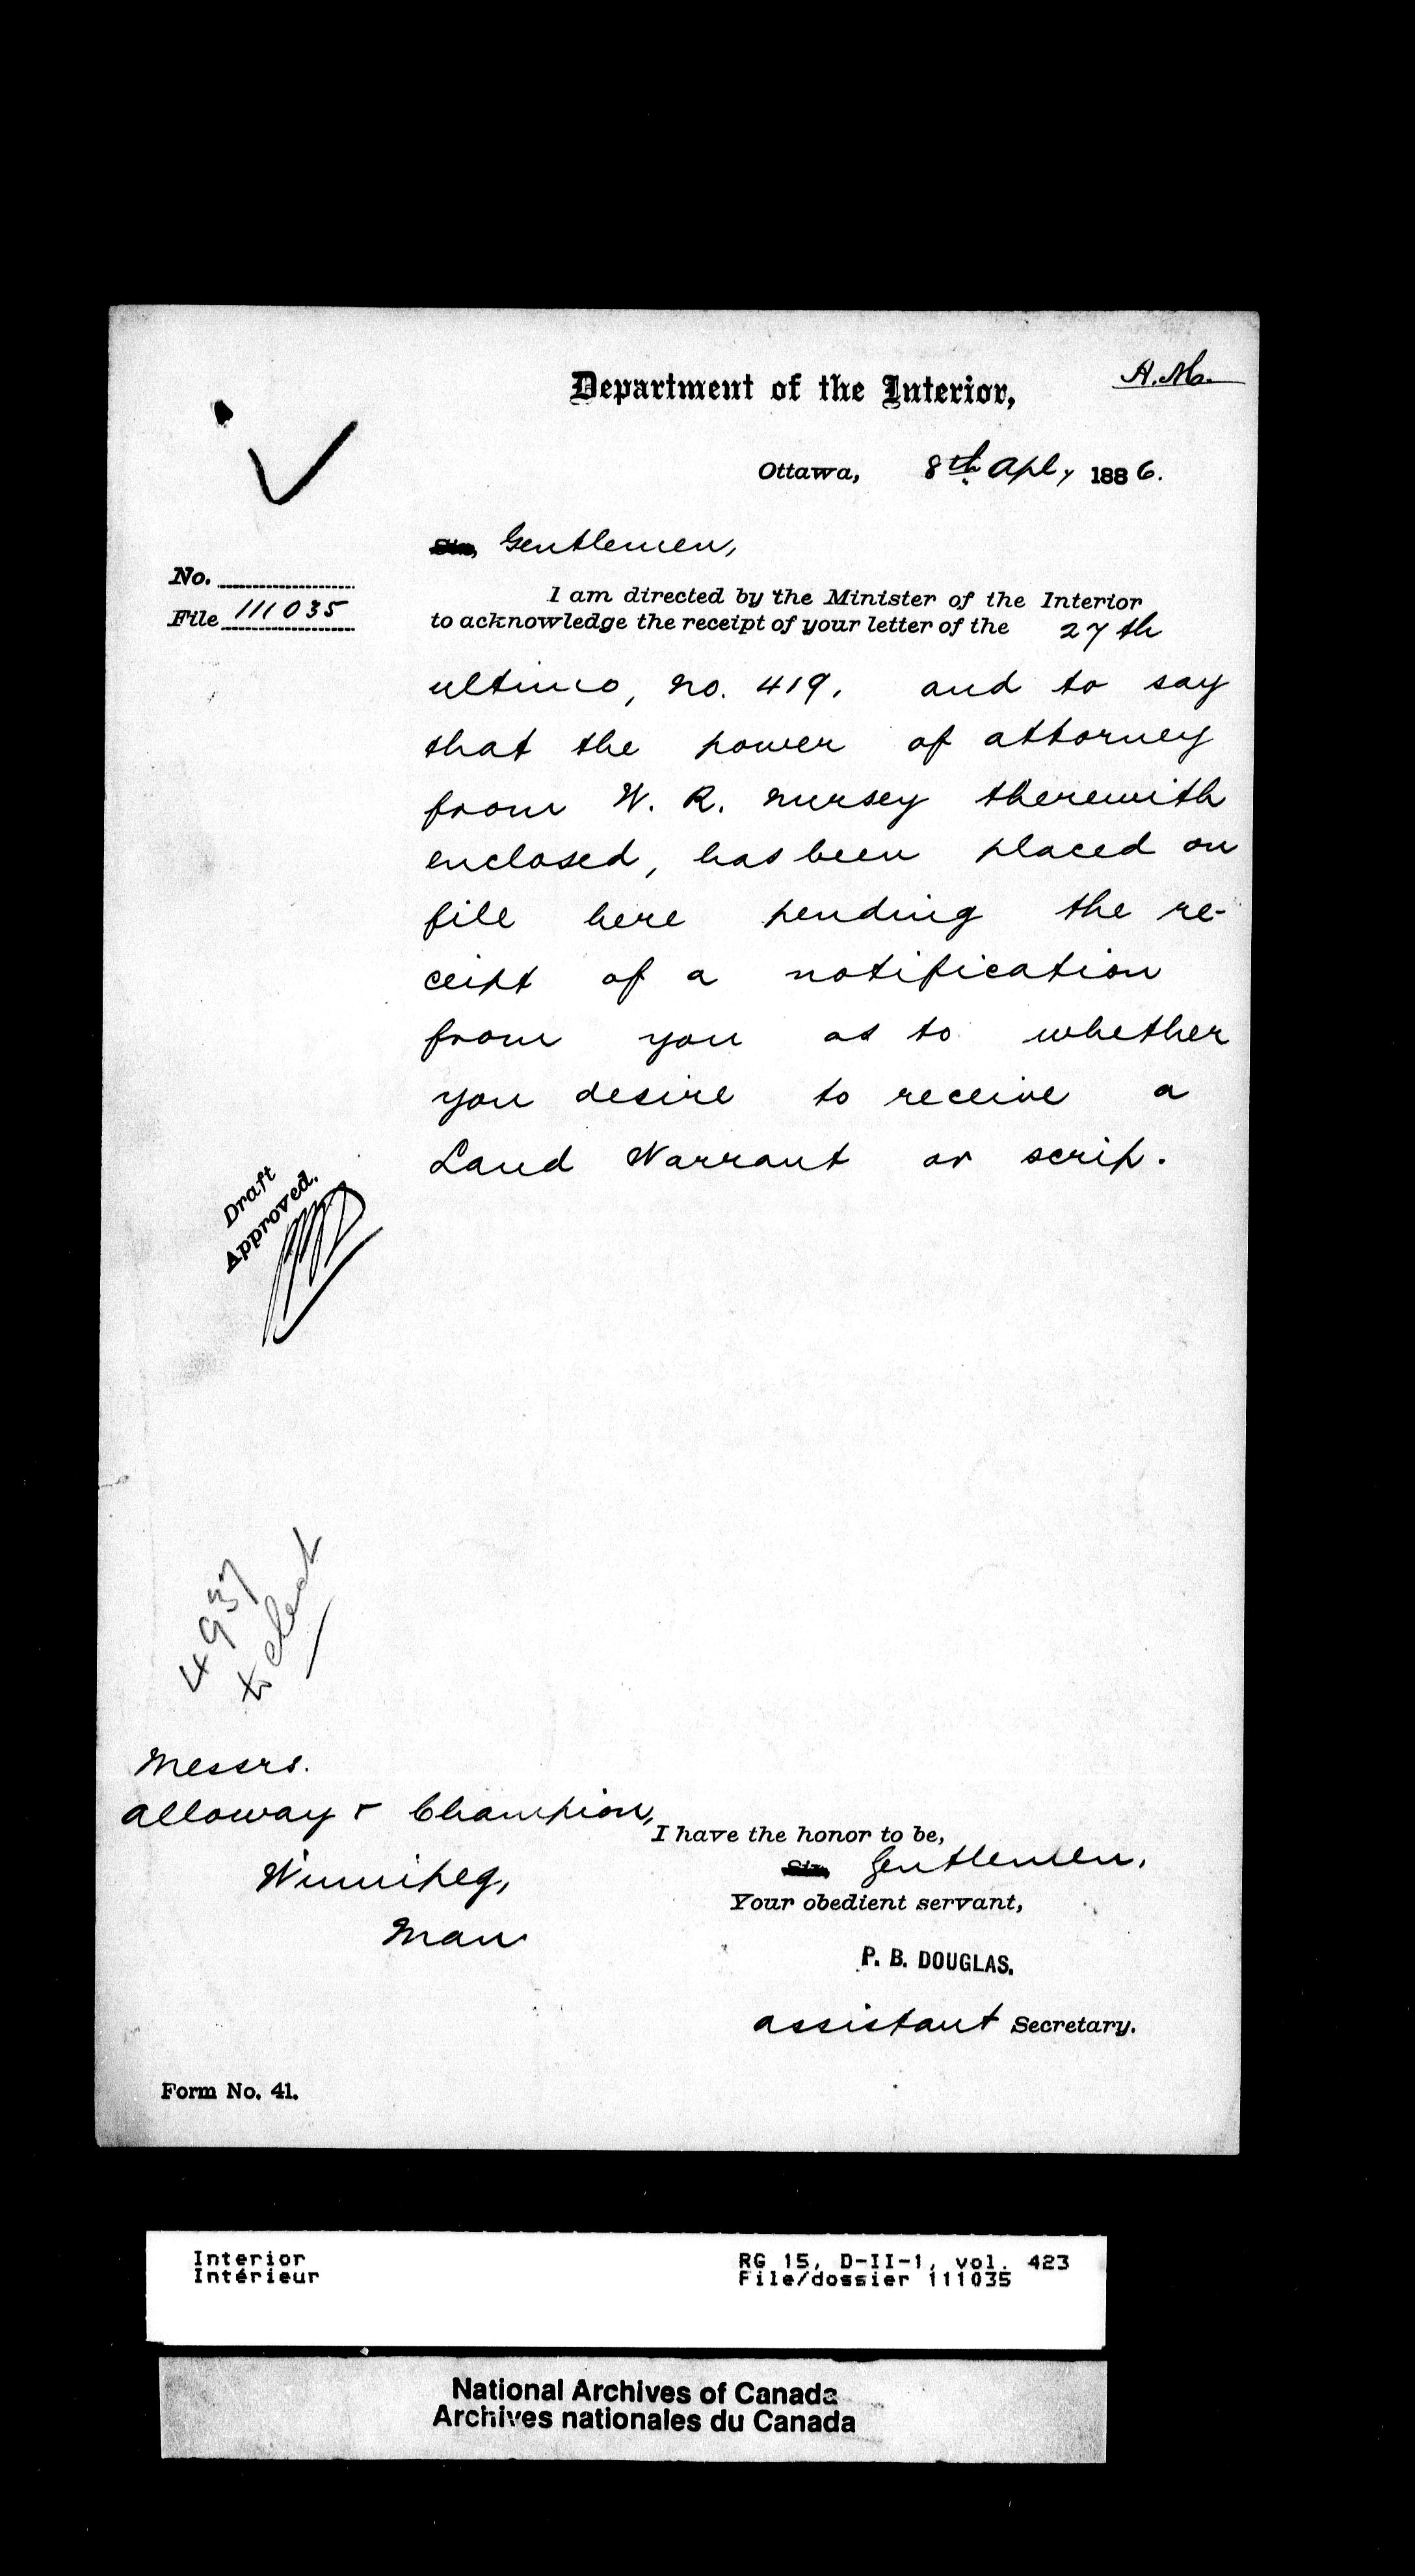 A.M.
Department of the Interior,
Ottawa, 8th Apl, 1886.
Sir, Gentlemen,
No.
File 111035
I am directed by the Minister of the Interior
to acknowledge the receipt of your letter of the 27th
ultimo, No. 419, and to say
that the power of attorney
from W. R. Nursey therewith
enclosed, has been placed on
file here pending the re-
ceipt of a notification
from you as to whether
you desire to receive a
Land Warrant or scrip.
Draft
Approved.
4937
to
Messrs.
Alloway & Champion,
Winnipeg,
Man
I have the honor to be,
Sir, Gentlemen,
Your obedient servant,
P. B. DOUGLAS.
Assistant Secretary.
Form No. 41.
Interior
Intérieur
RG 15, D-II-1, vol. 423
File/dossier 111035
National Archives of Canada
Archives nationales du Canada